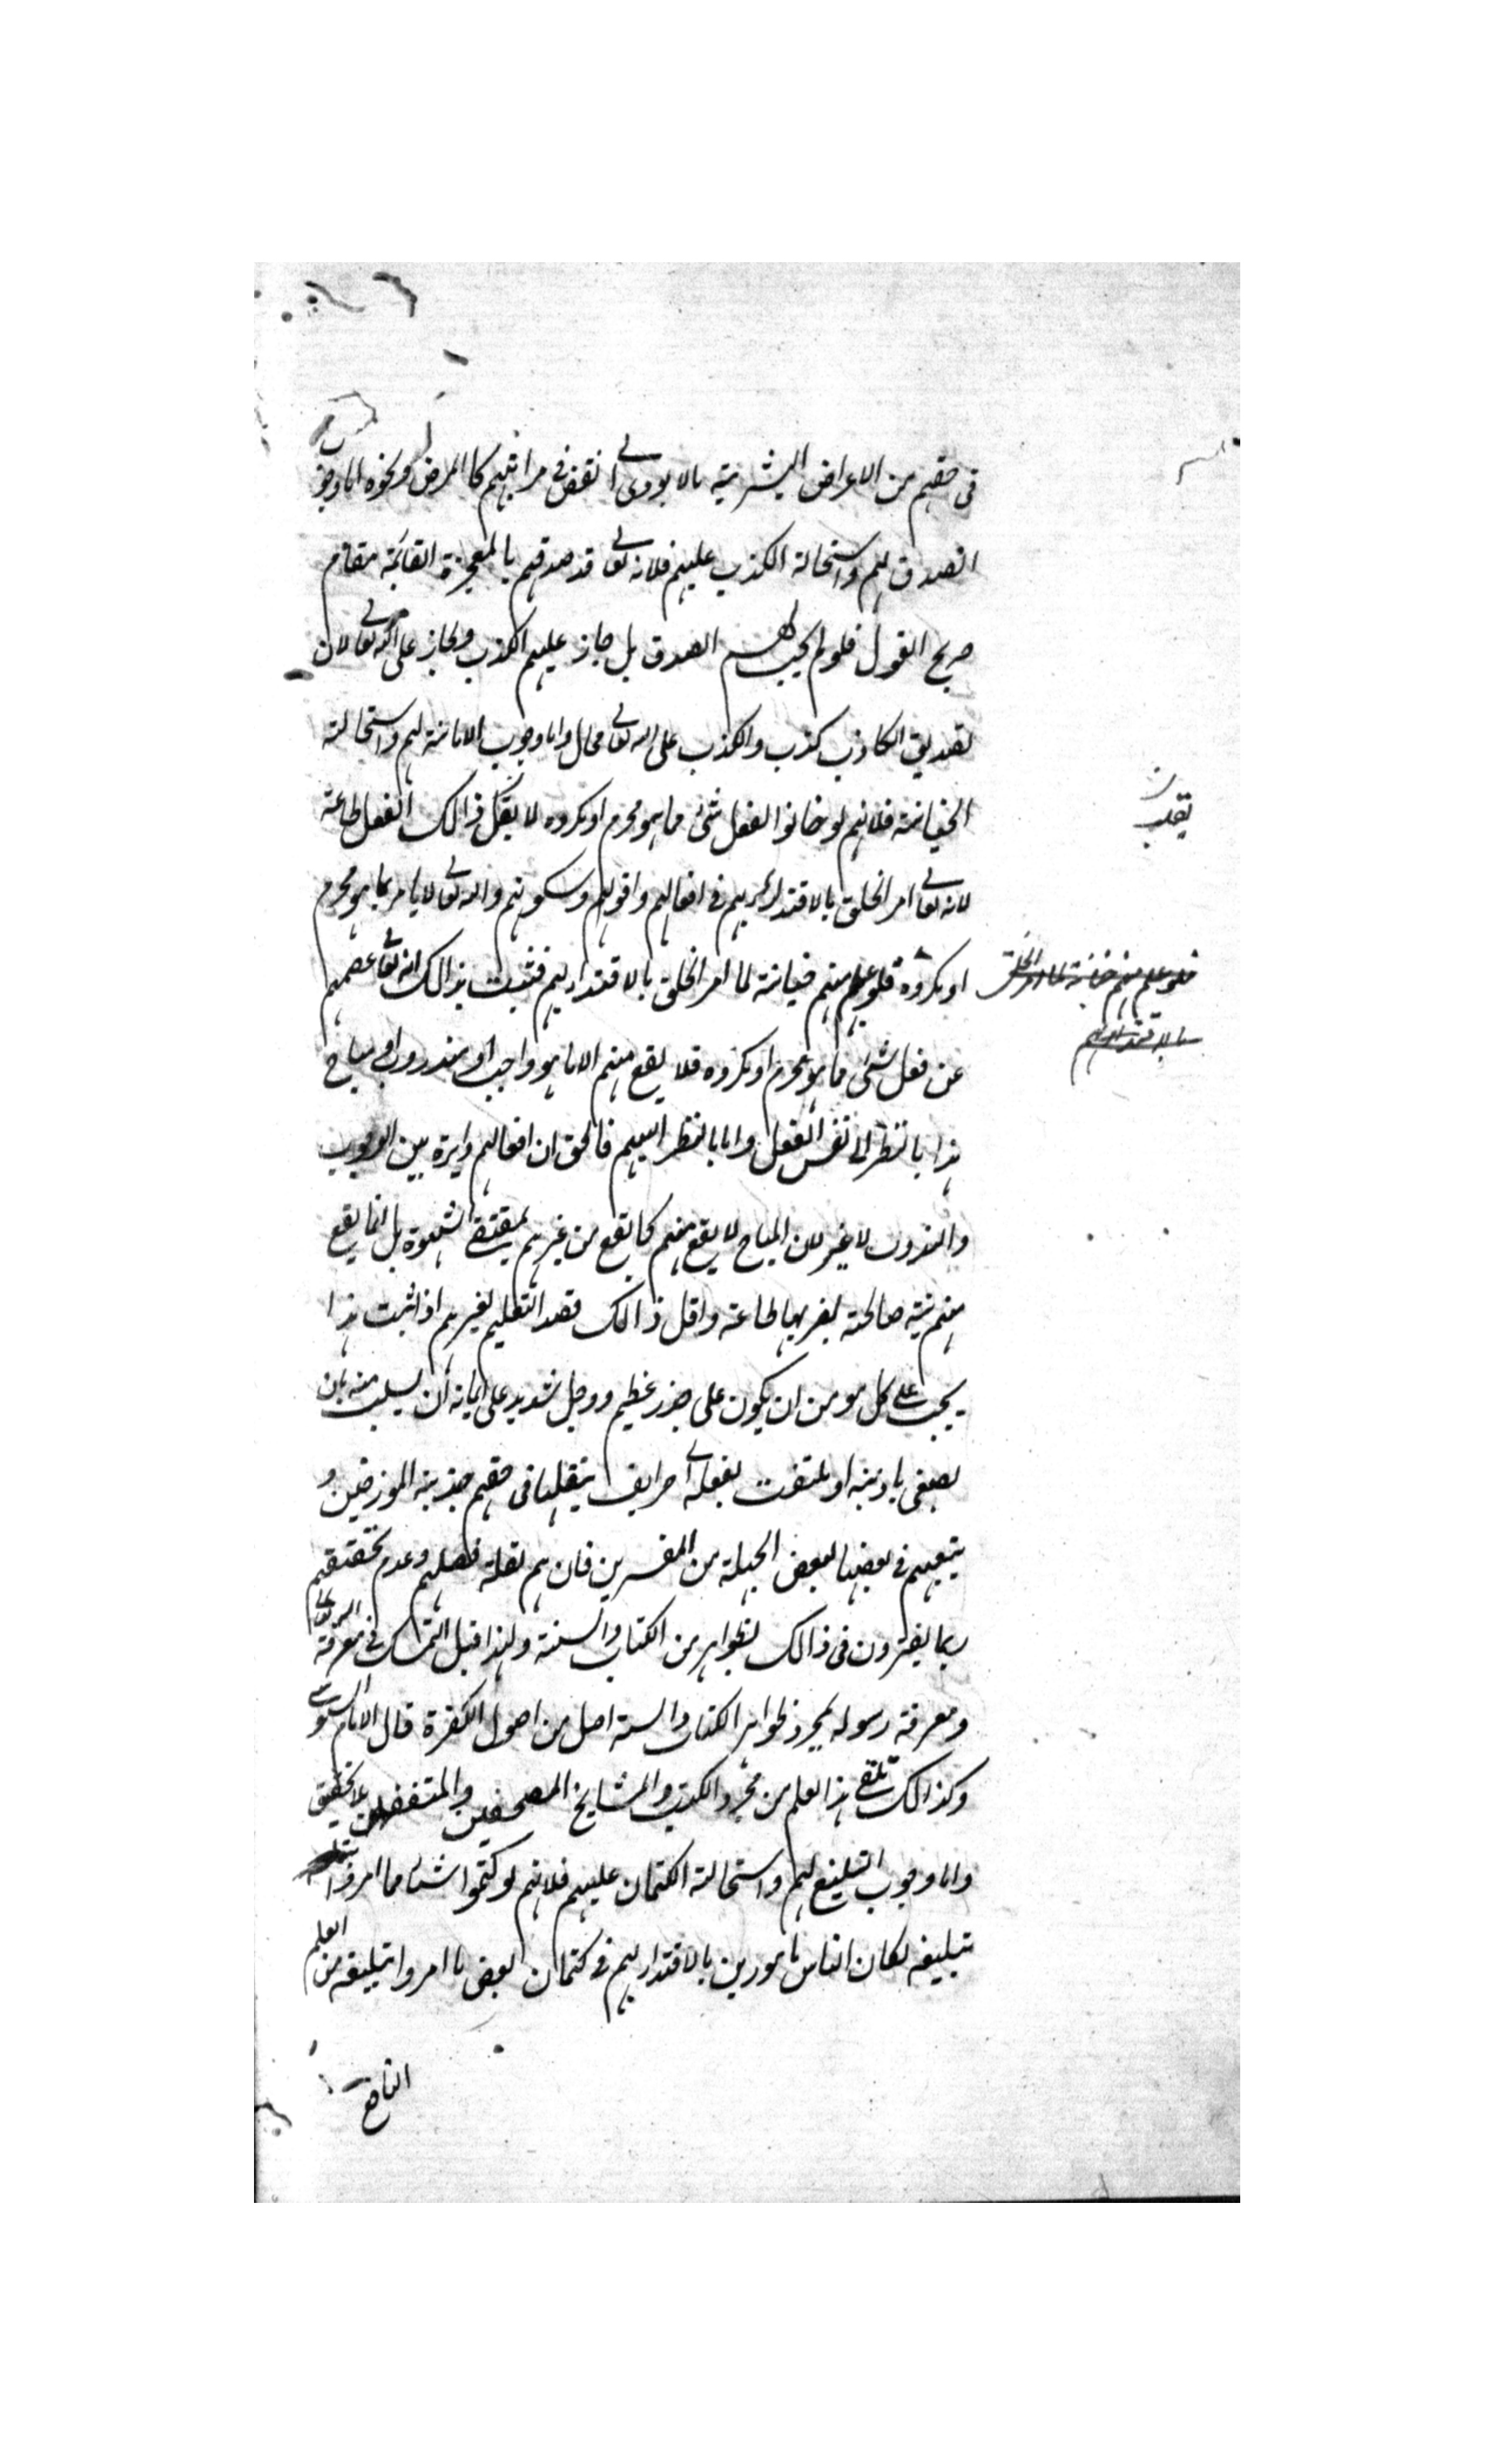 في حقهم من الاعراض البشرية مالا يودي الى نقض في مراتبهم كا المرض ونحوه اما وجوب
الصدق لهم واستحالة الكذب عليهم فلانه تعالى قد صدقهم بالمعجزة القائمة مقام
صريح القول فلو لم يجب لهم الصدق بل جاز عليهم الكذب لجاز على الله تعالى لان
تصديق الكاذب كذب والكذب على الله تعالى محال واما وجوب الامانة لهم واستحالة
الخيانة فلانهم لو خانوا لفعل شئ مما هو محرم او مكروه لا ينقلب ذالك الفعل طاعة
ينقلب
لانه تعالى امر الخلق بالاقتداء بهم في افعالهم واقوالهم وسكوتهم والله تعالى لا يامر بما هو محرم
او مكروه فلو علم منهم خيانة لما امر الخلق بالاقتداء بهم فثبت بذالك انه تعالى عصمهم
فلو علم منهم خيانة لما امر الخلق
بالاقتداء بهم
عن فعل شئ مما هو محرم او مكروه فلا يقع منهم الا ما هو واجب او مندوب او مباح
هذا بالنظر الى نفس الفعل واما بالنظر اليهم فالحق ان افعالهم دايرة بين الوجوب
والمندوب لا غير لان المباح لا يقع منهم كما يقع من غيرهم بمقتضى الشهوة بل انما يقع
منهم نية صالحة يصر بها طاعة واقل ذالك قصد التعليم لغيرهم اذا ثبت هذا
يجب على كل مومن ان يكون على حذر عظيم ووجل شديد على ايمانه ان يسلب منه بان
يصغى باذنه او يلتفت بعقله الى خرايف ينقلها في حقهم جذبة المورخين و
يتبعهم في بعضها بعض الجهلة من المفسرين فان هم لقلة فضلهم وعدم تحقيقهم
بما يغترون في ذالك بظواهر من الكتاب والسنة ولهذا قيل التمسك في معرفة الله تعالى
ومعرفة رسوله بمجرد ظواهر الكتاب والسنة اصل من اصول الكفرة قال الامام السنوسي
وكذالك تلقى هذا العلم من مجرد الكتب والمشايخ المصحفين والمتفقهين بلا تحقيق
واما وجوب التبليغ لهم واستحالة الكتمان عليهم فلانهم لو كتموا شيئا مما امروا
تبليغه لكان الناس مامورين بالاقتداء بهم في كتمان بعض ما امروا تبليغه من العلم
النافع